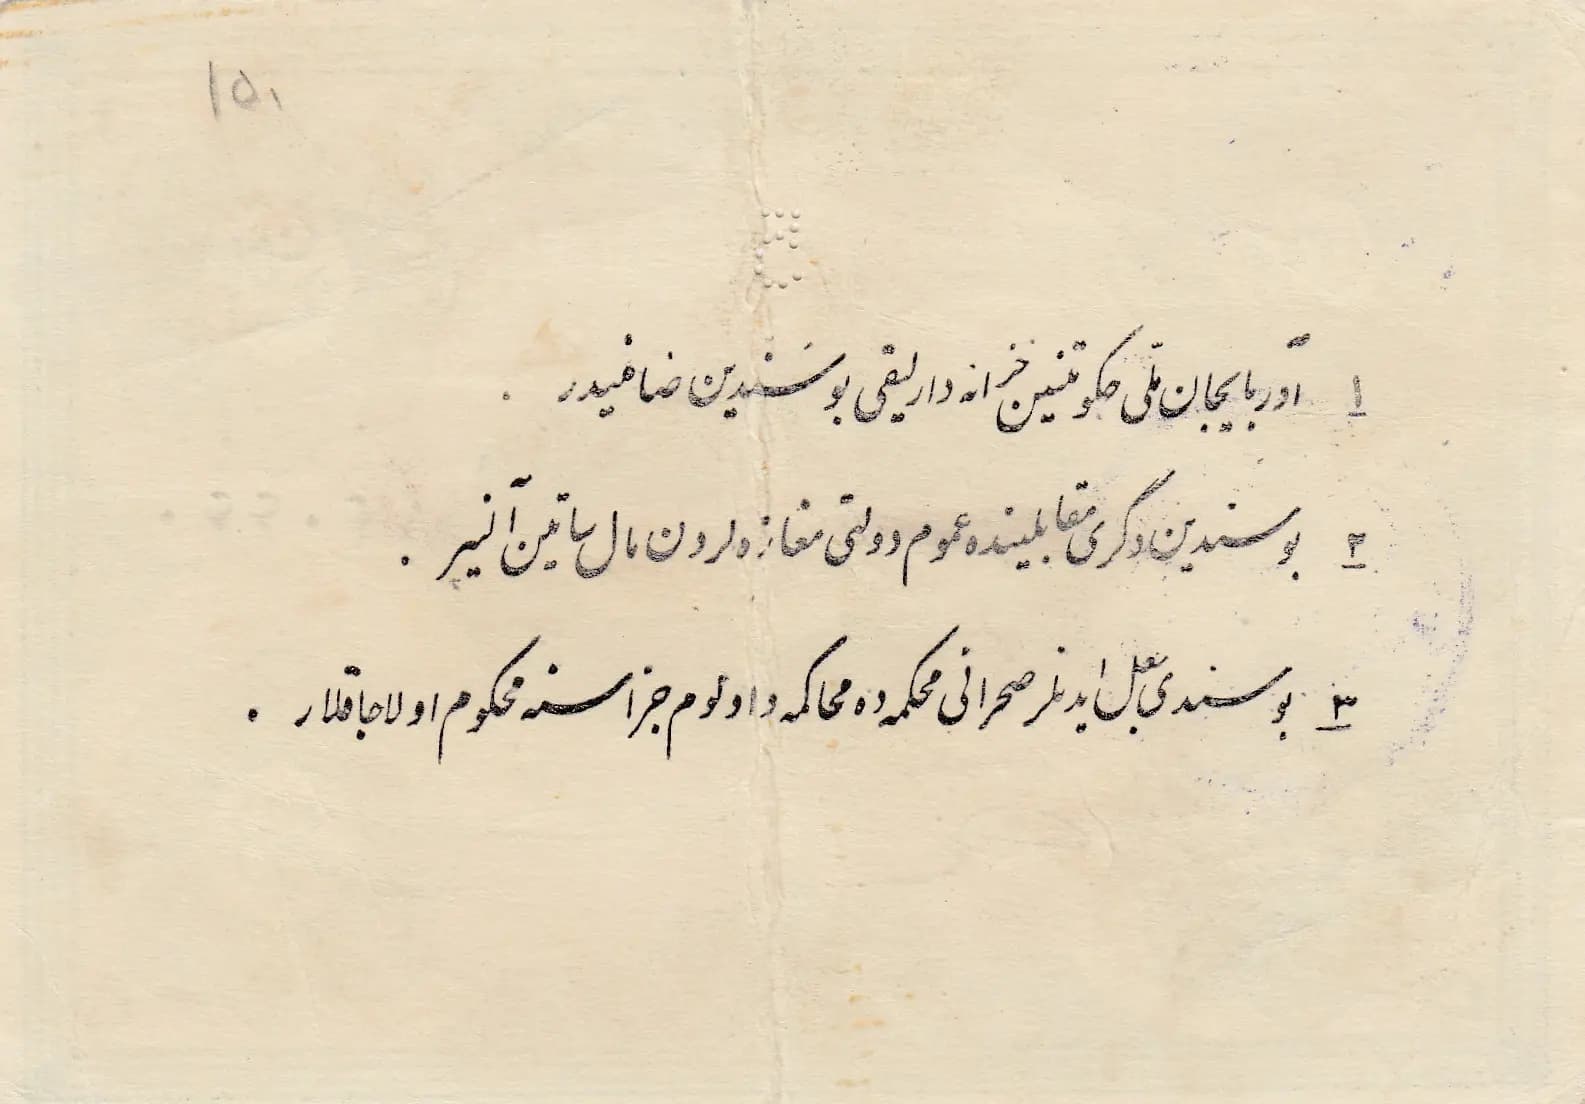 ١٥٠
١ آذربایجان ملّی حکومتینین خزانه دارلیقی بو سَندین ضامنیدر .
٢ بو سندین دگری مقابلینده عموم دولتی مغازه لردن مال ساتین آلنیر .
٣ بو سندی جعل ایدنلر صحرائی محکمه ده محاکمه و اولوم جزاسنه محکوم اولاجاقلار .